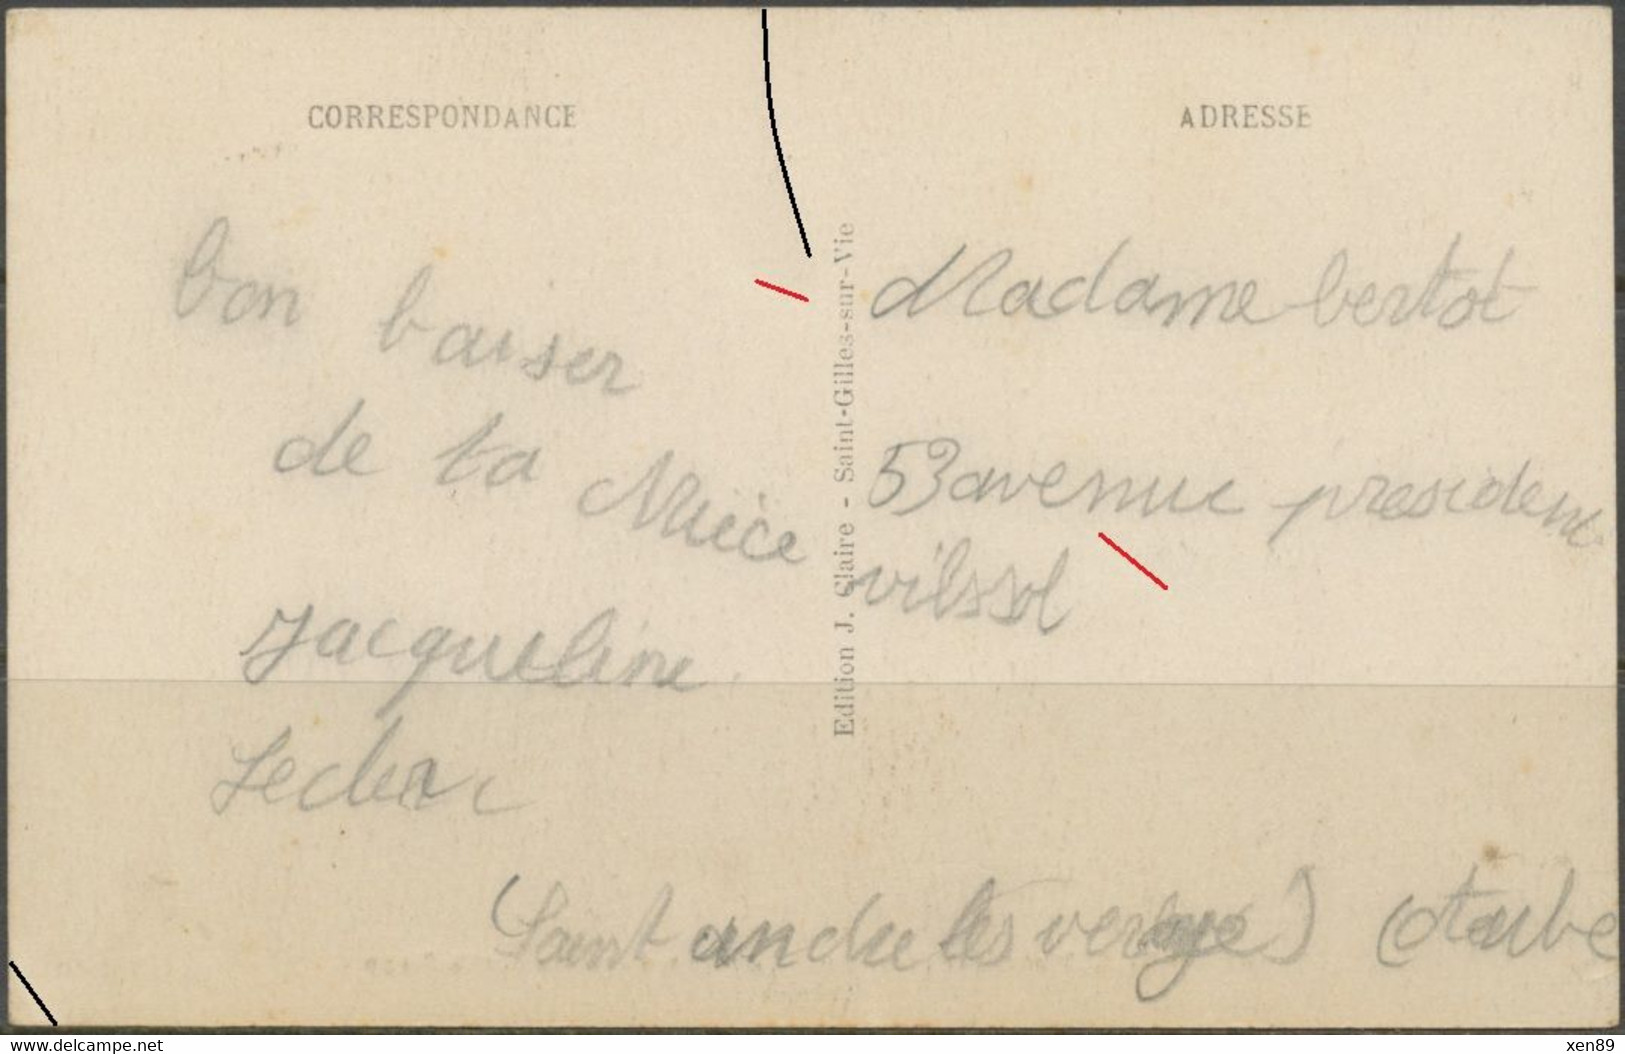 CORRESPONDANCE
bon baiser
de ta Nièce
Jacqueline
Leclerc
Edition J. Claire - Saint-Gilles-sur-Vie
ADRESSE
Madame bertot
53 avenue president
vilssol
(Saint andre les verges) (Aube
www.delcampe.net
xen89